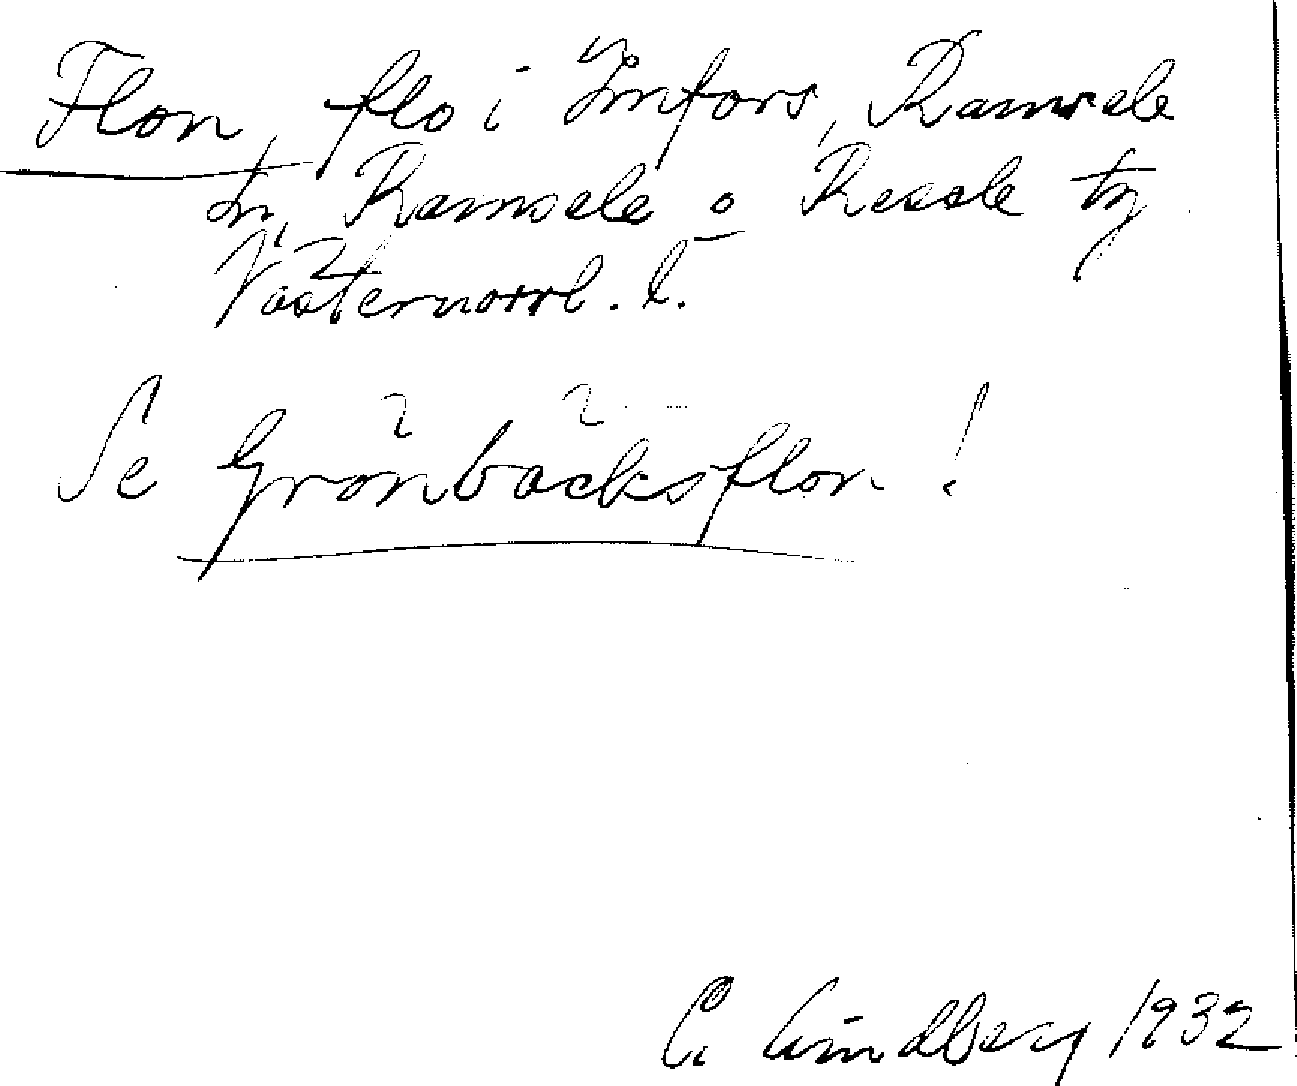 Flon, flo i Imfors, Ramsele
sn, Ramsele o Resele tg
Västernorrl. l.
Se Grönbäcksflon !
C. Lindberg 1932